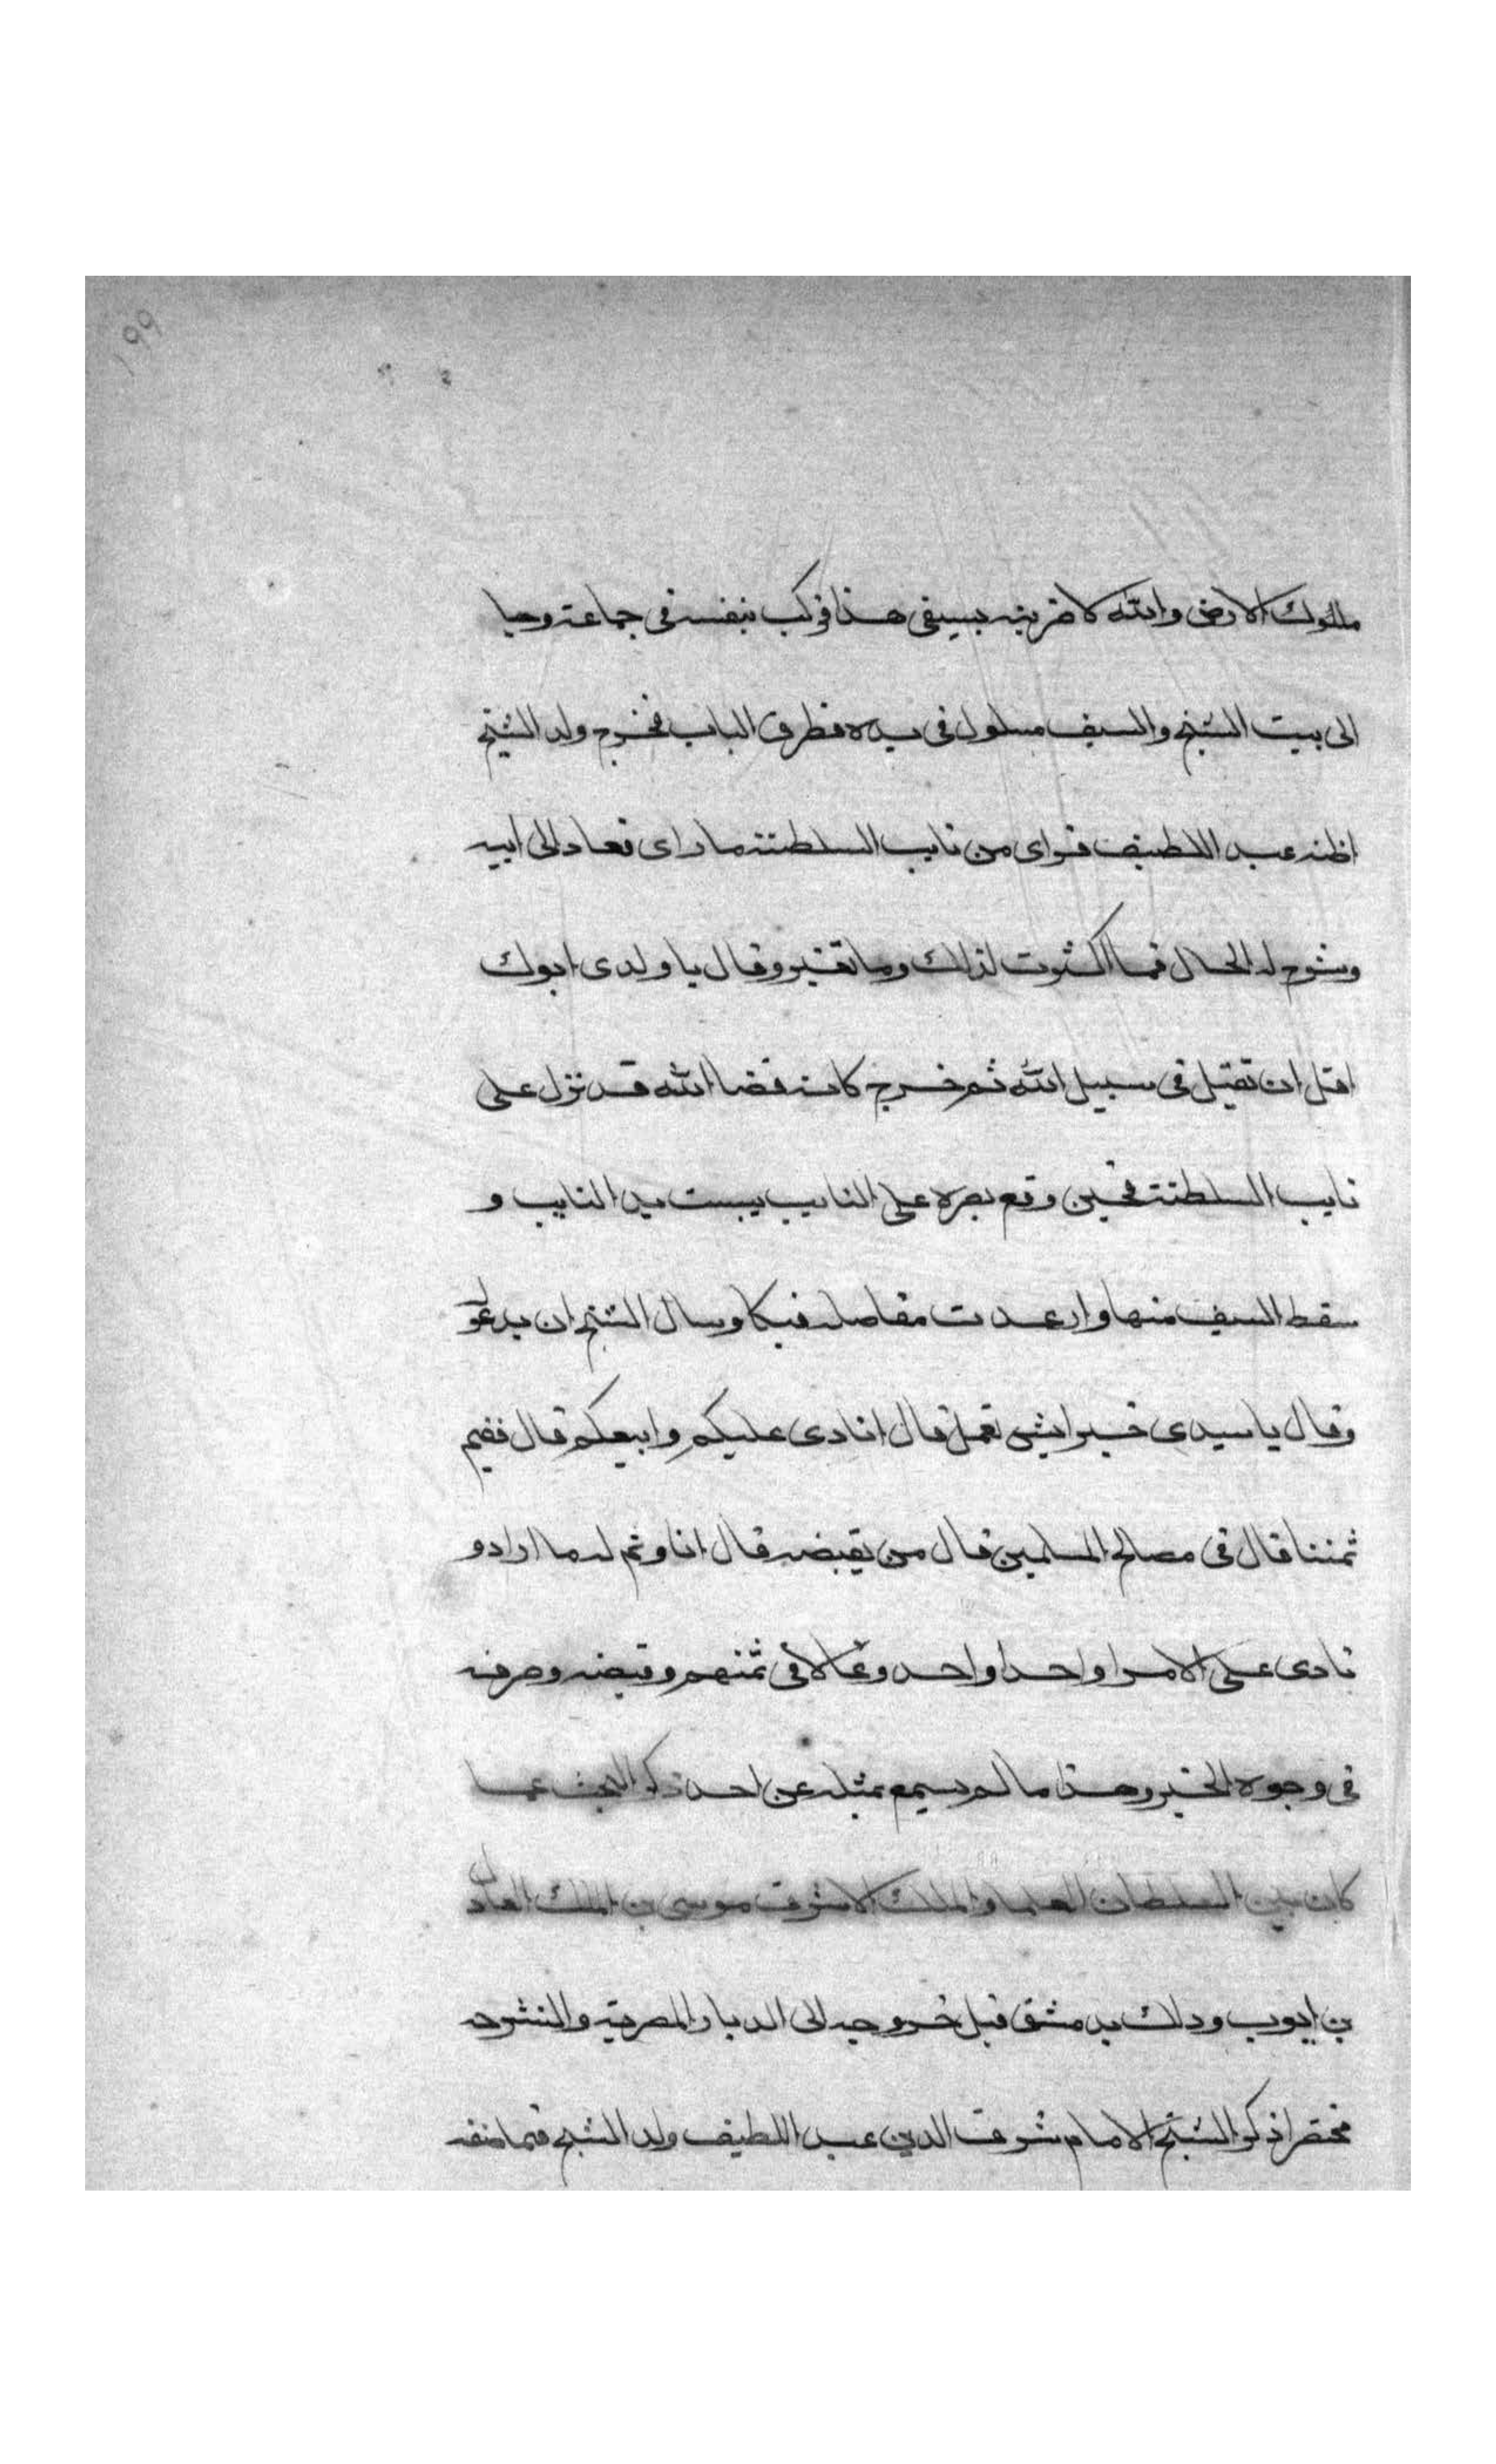 ١٩٩
ملوك الارض والله لاضربنه بسيفى هذا فركب بنفسه فى جماعة وجا
الى بيت الشيخ والسيف مسلول فى يده فطرق الباب فخرج ولد الشيخ
اظنه عبد اللطيف فراى من نايب السلطنة ما راى فعاد الى ابيه
وشرح له الحال فما اكثرت لذلك وما تغير وقال يا ولدى ابوك
اقل ان يقتل فى سبيل الله ثم خرج كانه قضا الله قد نزل على
نايب السلطنة فحين وقع بصره على النايب يبست يد النايب و
سقط السيف منها وارعدت مفاصله فبكا وسال الشيخ ان يدعو له
وقال يا سيدى خير ايش تعمل قال انادى عليكم وابيعكم قال ففيم
ثمننا قال فى مصالح المسلمين قال من يقبضه قال انا وتم له ما اراد و
نادى على الامرا واحدا واحد وغالا فى ثمنهم وقبضه وصرفه
فى وجوه الخير وهذا ما لم يسمع بمثله عن احد ذكر البحث عما
كان بين السلطان العلما والملك الاشرف موسى بن الملك العادل
بن ايوب ودلك بدمشق قبل خروجه الى الديار المصرية والنشرحه
مختصرا ذكر الشيخ الامام شرف الدين عبد اللطيف ولد الشيخ فيما صنفه